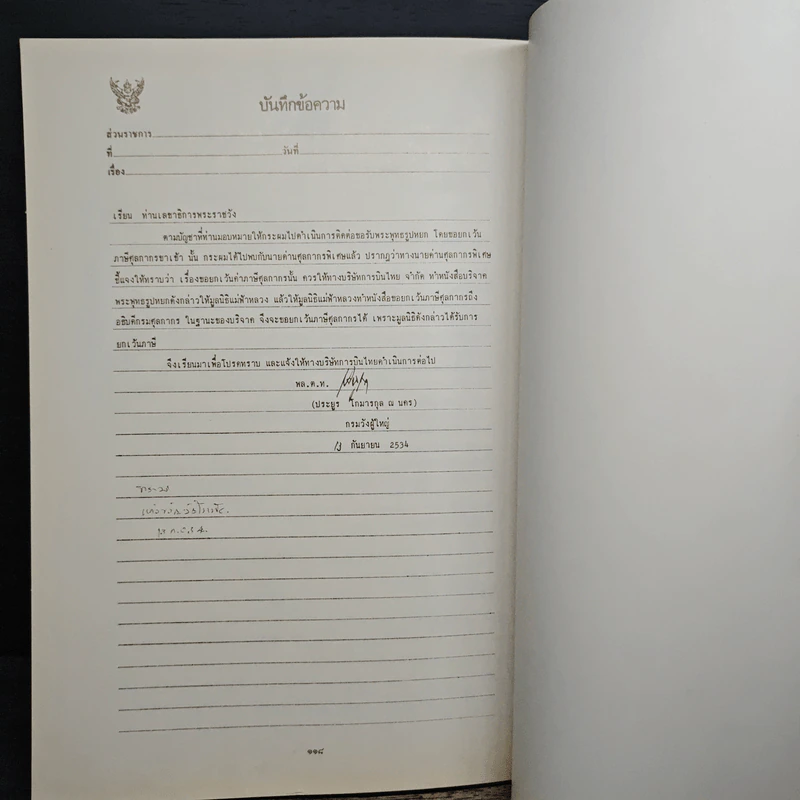 บันทึกข้อความ
ส่วนราชการ
ที่ วันที่
เรื่อง
เรียน ท่านเลขาธิการพระราชวัง
ตามบัญชาที่ท่านมอบหมายให้กระผมไปดำเนินการติดต่อขอรับพระพุทธรูปหยก โดยขอยกเว้น
ภาษีศุลกากรขาเข้า นั้น กระผมได้ไปพบกับนายด่านศุลกากรพิเศษแล้ว ปรากฏว่าทางนายด่านศุลกากรพิเศษ
ชี้แจงให้ทราบว่า เรื่องขอยกเว้นค่าภาษีศุลกากรนั้น ควรให้ทางบริษัทการบินไทย จำกัด ทำหนังสือบริจาค
พระพุทธรูปหยกดังกล่าวให้มูลนิธิแม่ฟ้าหลวง แล้วให้มูลนิธิแม่ฟ้าหลวงทำหนังสือขอยกเว้นภาษีศุลกากรถึง
อธิบดีกรมศุลกากร ในฐานะของบริจาค จึงจะขอยกเว้นภาษีศุลกากรได้ เพราะมูลนิธิดังกล่าวได้รับการ
ยกเว้นภาษี
จึงเรียนมาเพื่อโปรดทราบ และแจ้งให้ทางบริษัทการบินไทยดำเนินการต่อไป
พล.ต.ท.
(ประยูร โกมารกุล ณ นคร)
กรมวังผู้ใหญ่
13 กันยายน 2534
ทราบ
๑๑๘